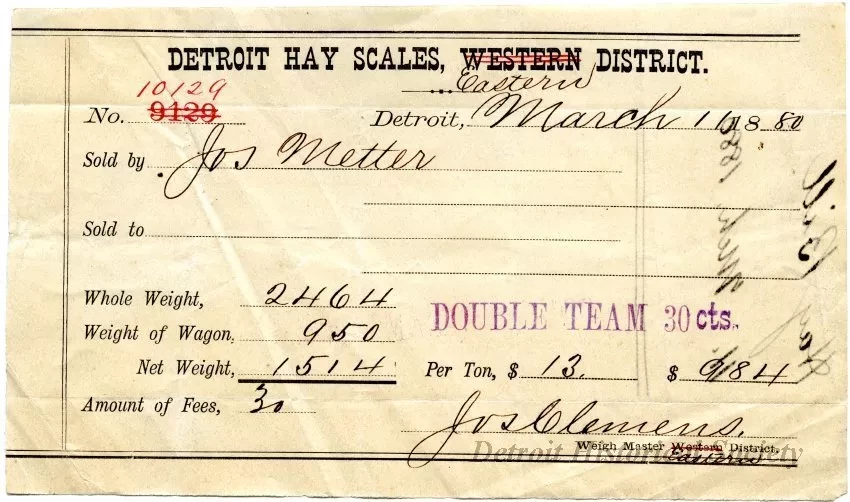 DETROIT HAY SCALES, WESTERN DISTRICT.
Eastern
10129
No. 9129 Detroit, March 11 1880
Sold by Jos Metter
Sold to
Whole Weight, 2464
Weight of Wagon, 950
DOUBLE TEAM 30 cts.
Net Weight, 1514 Per Ton, $ 13. $ 984
Amount of Fees, 30
Jos Clemens.
Weigh Master Western District.
Eastern
Detroit Historical Society